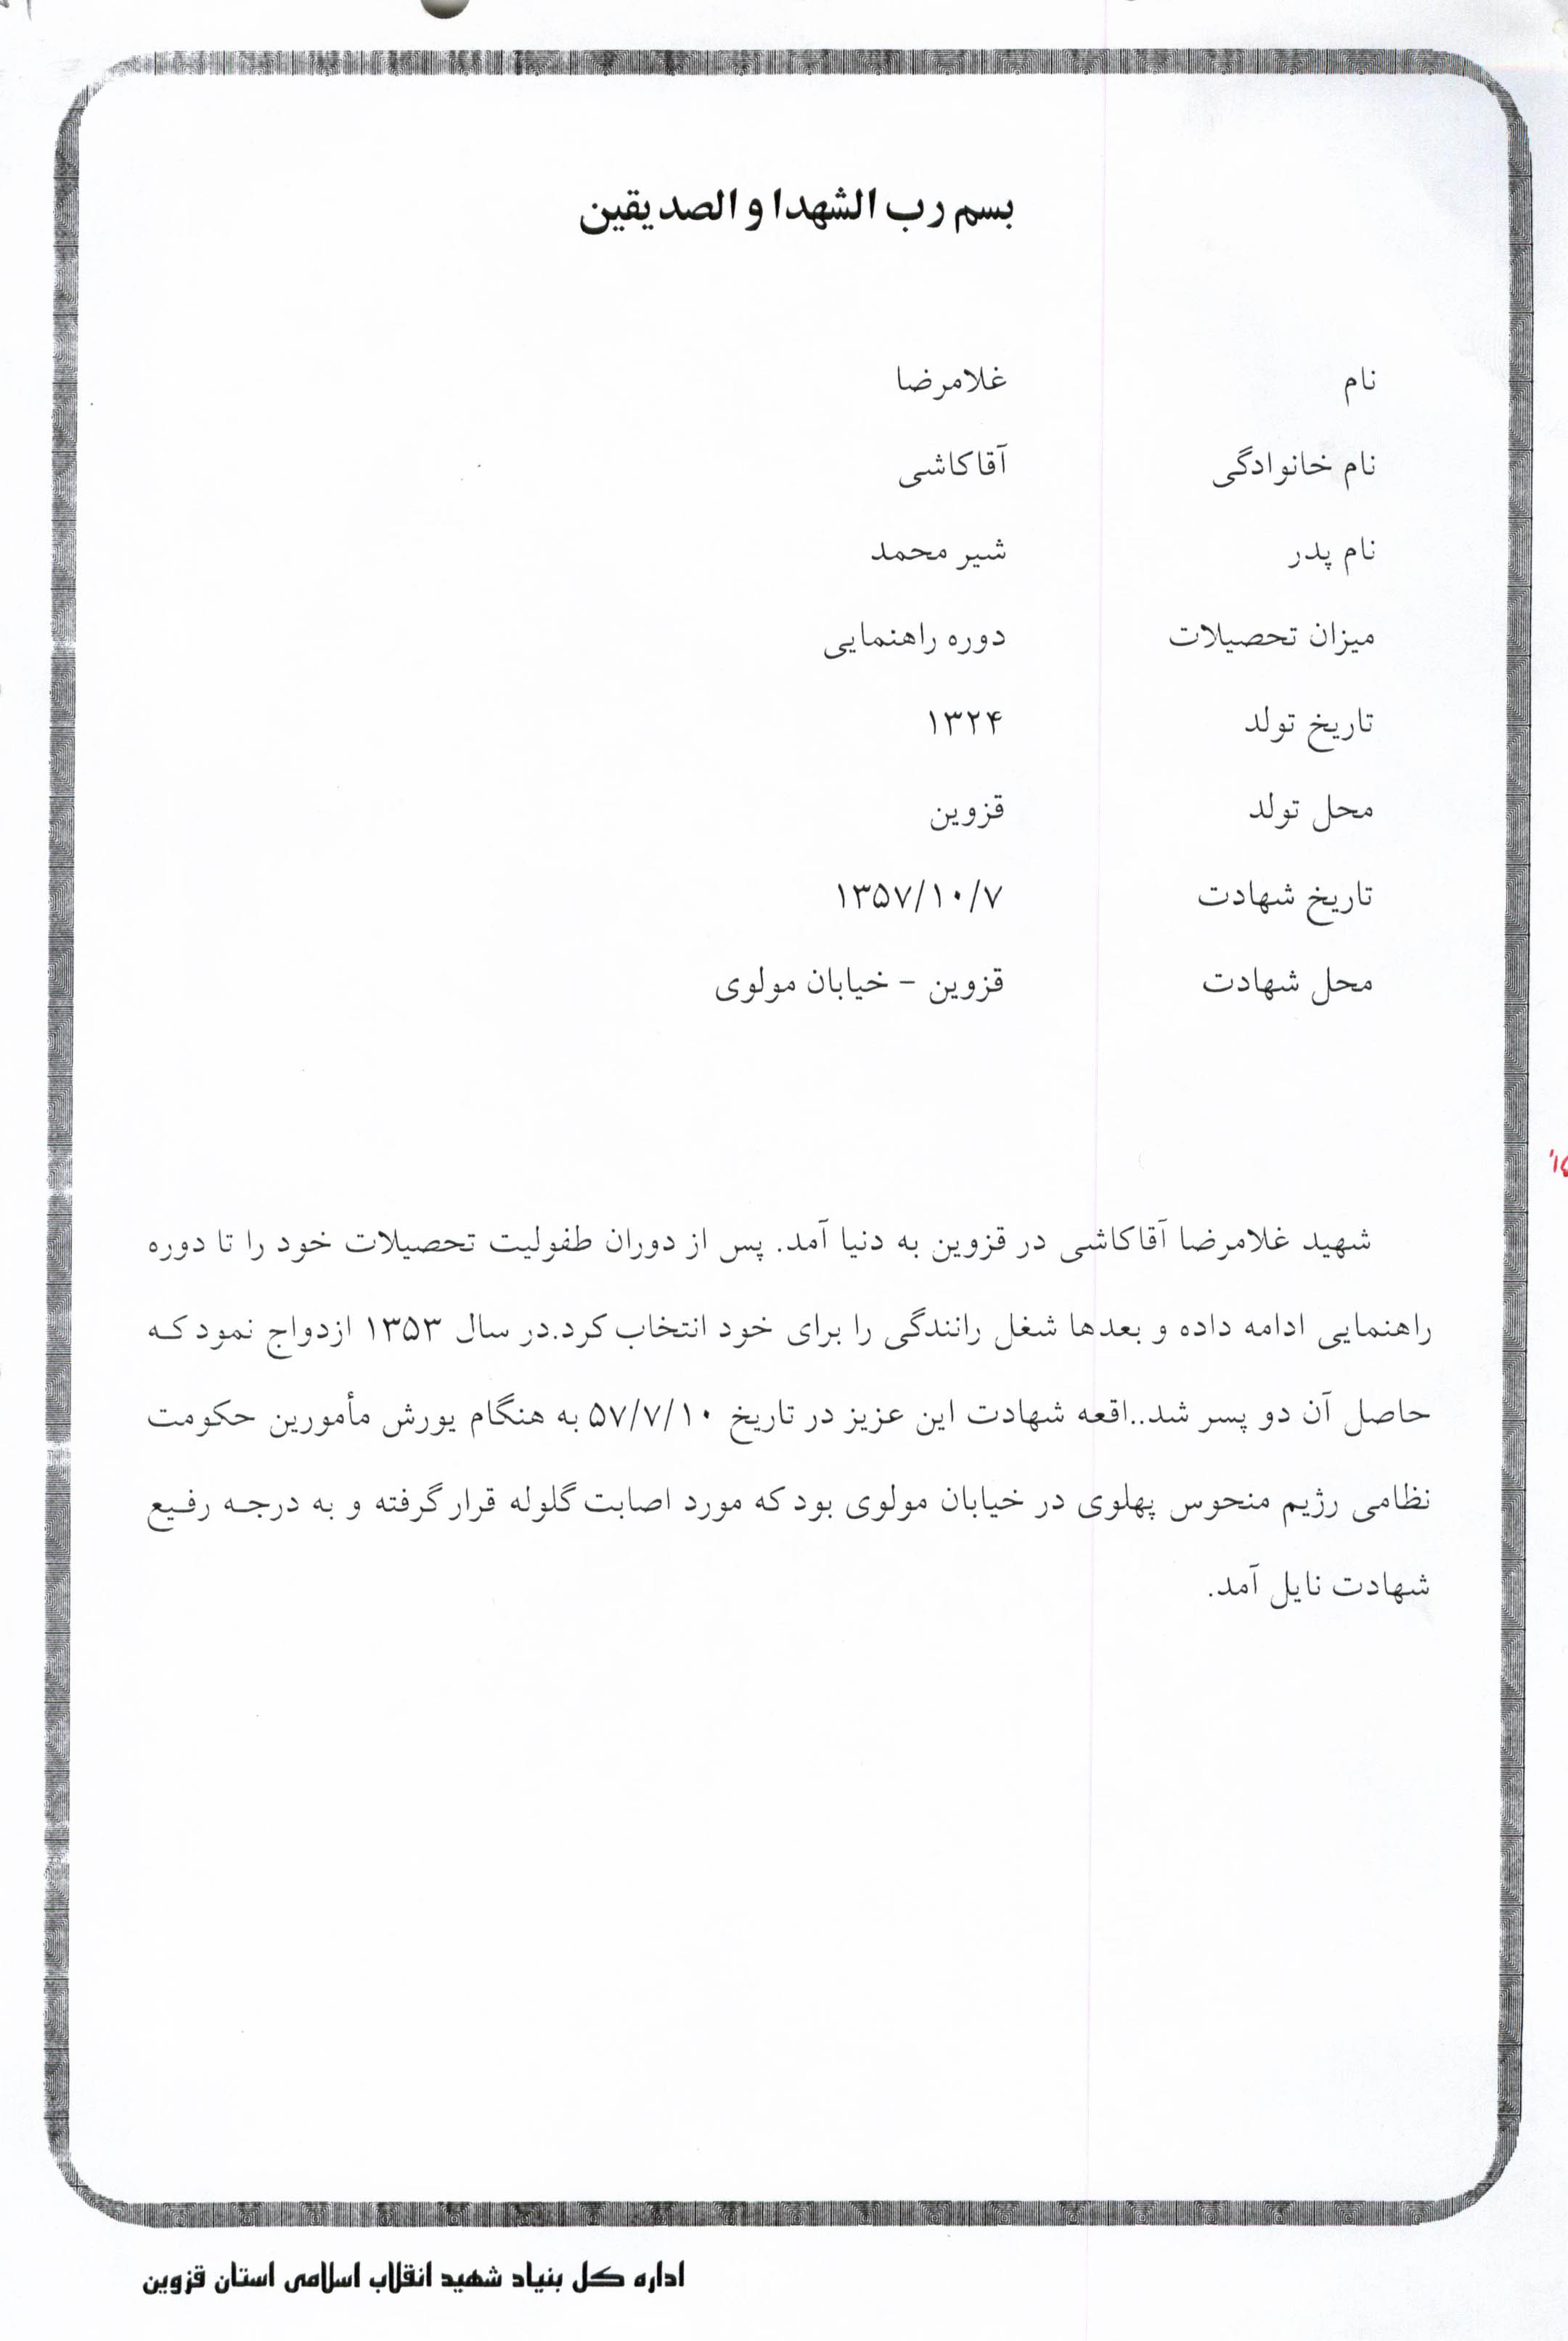 بسم رب الشهدا و الصدیقین
نام غلامرضا
نام خانوادگی آقاکاشی
نام پدر شیر محمد
میزان تحصیلات دوره راهنمایی
تاریخ تولد ۱۳۲۴
محل تولد قزوین
تاریخ شهادت ۱۳۵۷/۱۰/۷
محل شهادت قزوین - خیابان مولوی
شهید غلامرضا آقاکاشی در قزوین به دنیا آمد. پس از دوران طفولیت تحصیلات خود را تا دوره
راهنمایی ادامه داده و بعدها شغل رانندگی را برای خود انتخاب کرد.در سال ۱۳۵۳ ازدواج نمود که
حاصل آن دو پسر شد..اقعه شهادت این عزیز در تاریخ ۵۷/۷/۱۰ به هنگام یورش مأمورین حکومت
نظامی رژیم منحوس پهلوی در خیابان مولوی بود که مورد اصابت گلوله قرار گرفته و به درجه رفیع
شهادت نایل آمد.
اداره کل بنیاد شهید انقلاب اسلامی استان قزوین